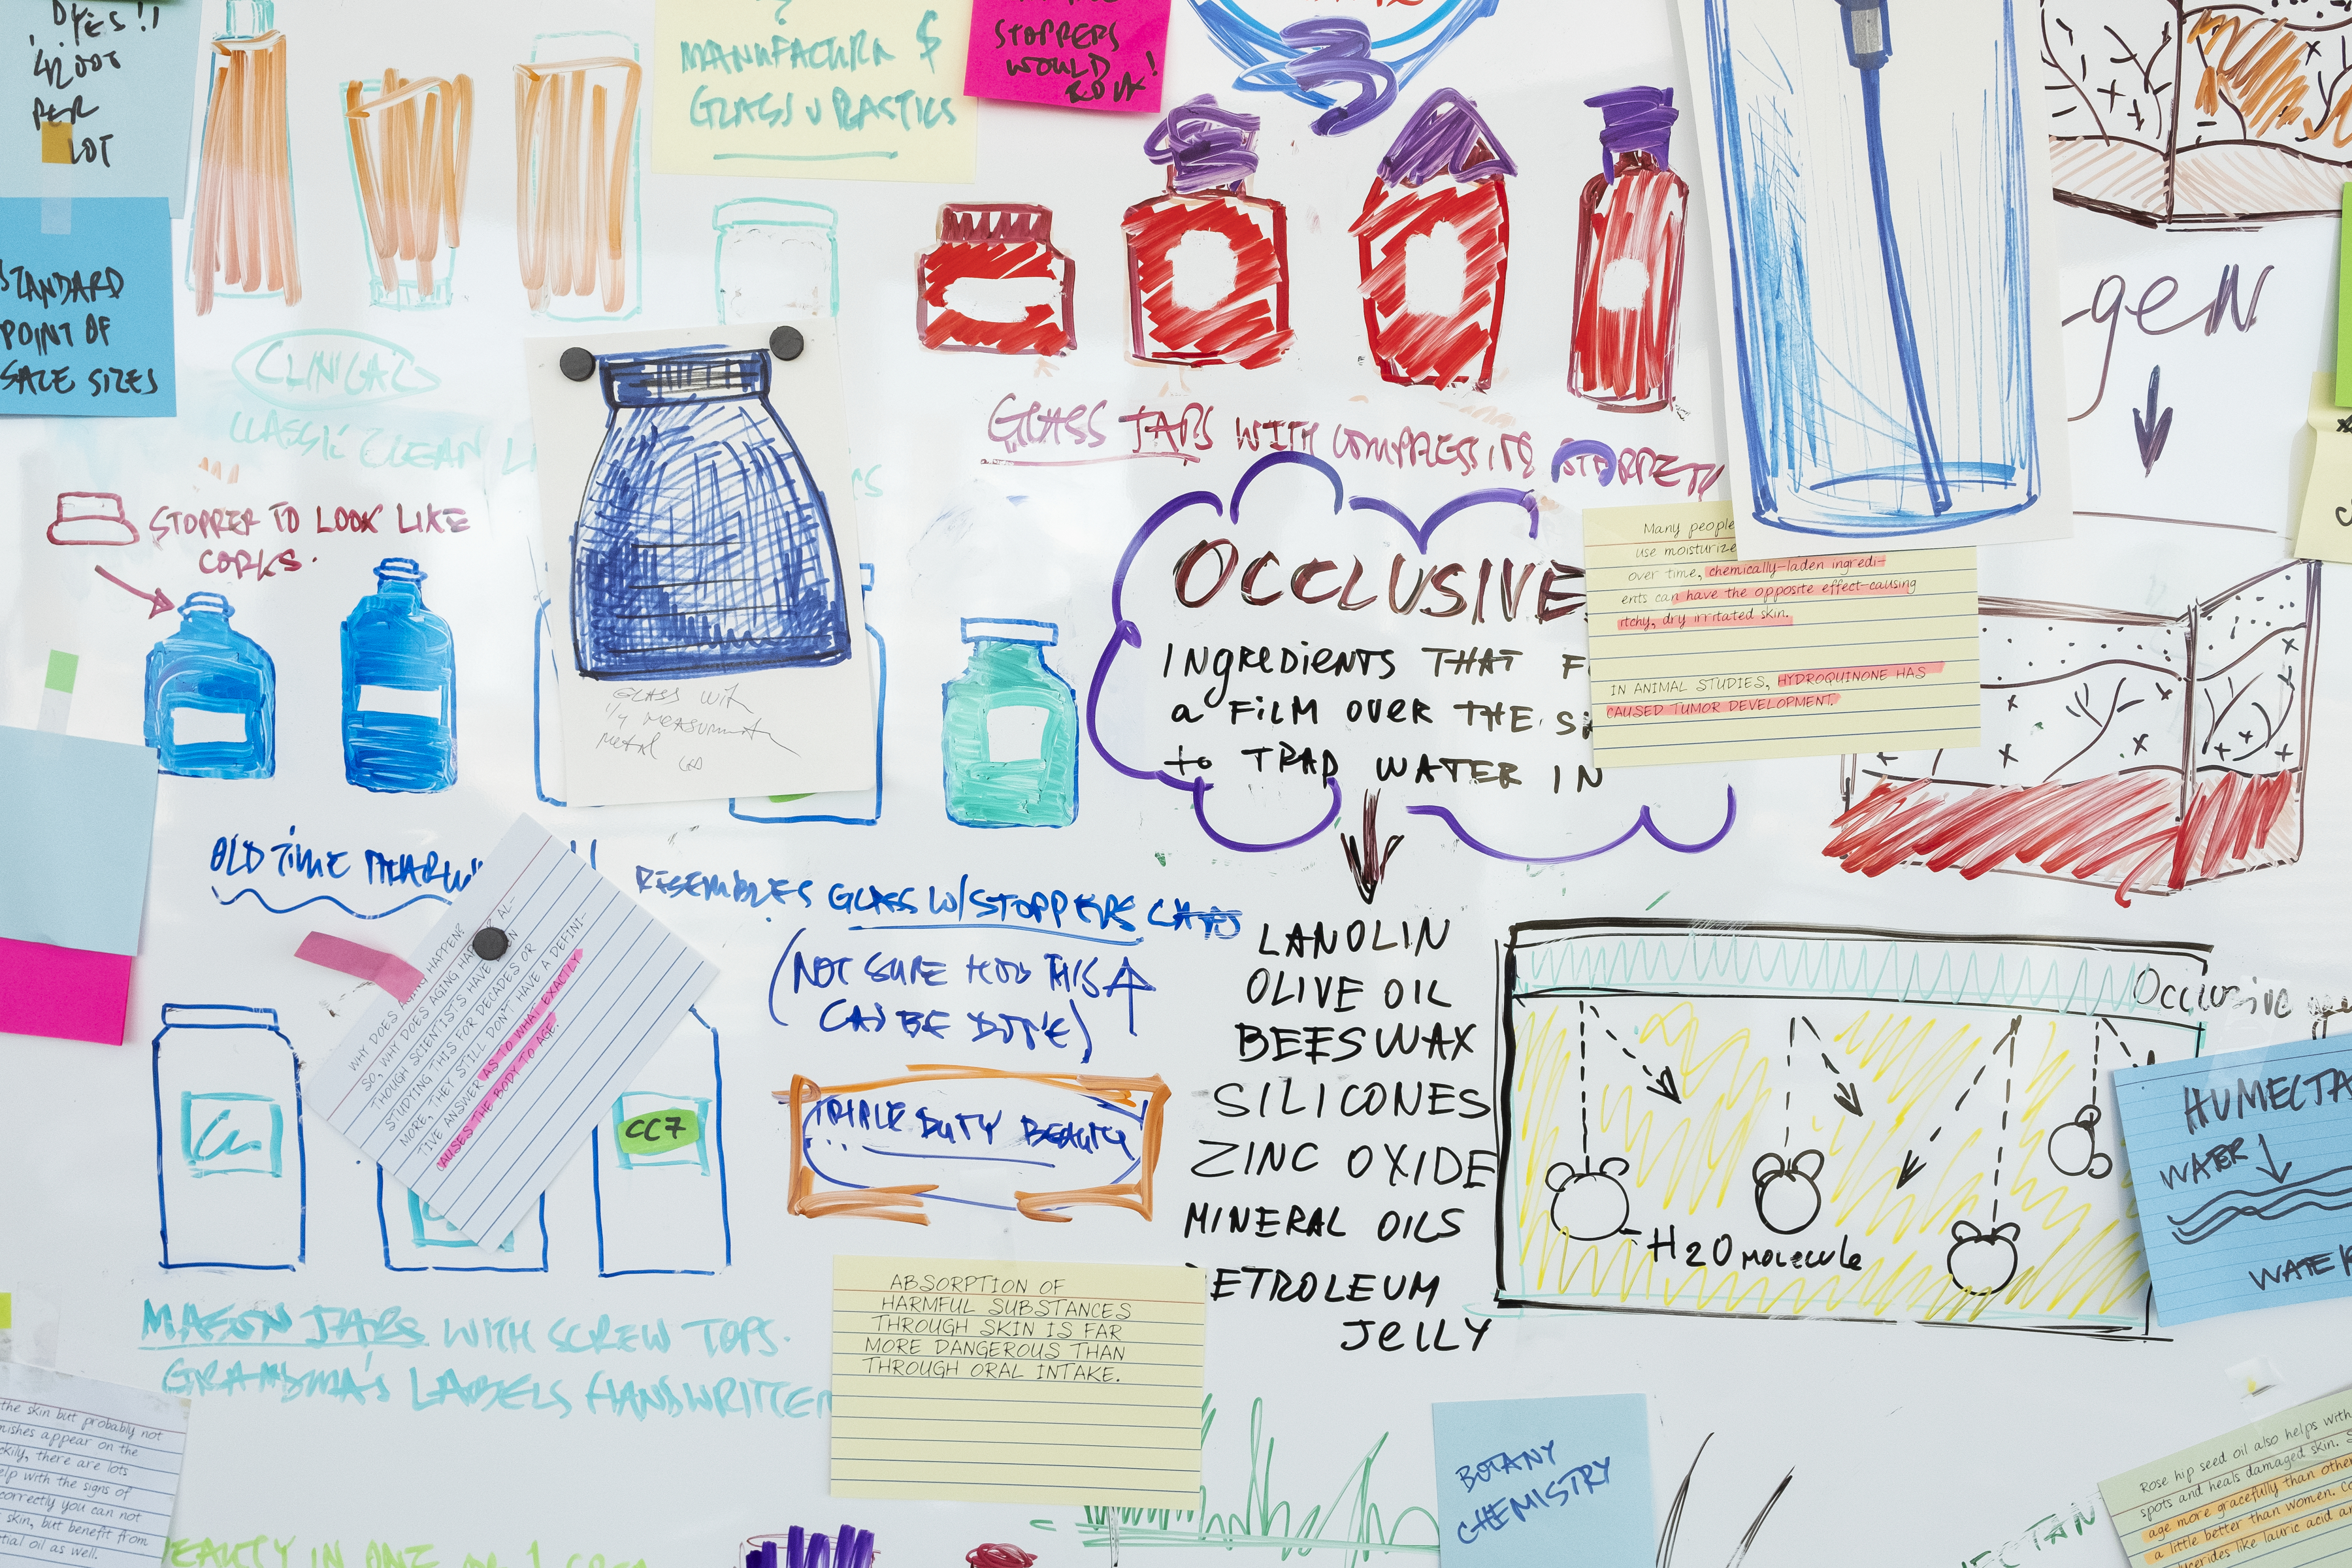 PER
LOT
STANDARD
POINT OF
SALE SIZES
MANUFACTURA $
GLASS
STOPPERS
WOULD
CLINICAL
CLASSIC CLEAN
STOPPER TO LOOK LIKE
CORKS.
GLASS JARS WITH COMPRESSING
gen
GLASS
METAL
OCCLUSIVE
INgREDIENTS THAT F
a FILM OVER THE
to TRAP WATER IN
Many people
use moisturize
over time, chemically-laden ingredi-
ents can have the opposite effect-causing
itchy, dry irritated skin.
IN ANIMAL STUDIES, HYDROQUINONE HAS
CAUSED TUMOR DEVELOPMENT.
OLD TIME
RESEMBLES GLASS W/STOPPERS
(NOT SURE HOW THIS
CAN BE DONE)
WHY DOES AGING HAPPEN?
SO, WHY DOES AGING HAPPEN? AL-
THOUGH SCIENTISTS HAVE BEEN
STUDYING THIS FOR DECADES OR
MORE, THEY STILL DON'T HAVE A DEFINI-
TIVE ANSWER AS TO WHAT EXACTLY
CAUSES THE BODY TO AGE.
CC7
TRIPLE DUTY BEAUTY
LANOLIN
OLIVE OIL
BEESWAX
SILICONES
ZINC OXIDE
MINERAL OILS
PETROLEUM
JELLY
Occlusive
H2O MOLECULE
HUMECTA
WATER
WATER
MASON JARS WITH SCREW TOPS.
GRANDMA'S LABELS HANDWRITTEN
ABSORPTION OF
HARMFUL SUBSTANCES
THROUGH SKIN IS FAR
MORE DANGEROUS THAN
THROUGH ORAL INTAKE.
BOTANY
CHEMISTRY
the skin but probably not
mishes appear on the
ckily, there are lots
elp with the signs of
correctly you can not
skin, but benefit from
tial oil as well.
BEAUTY IN ONE
Rose hip seed oil also helps with
spots and heals damaged skin. S
age more gracefully than other
a little better than women. C
ycerides like lauric acid a